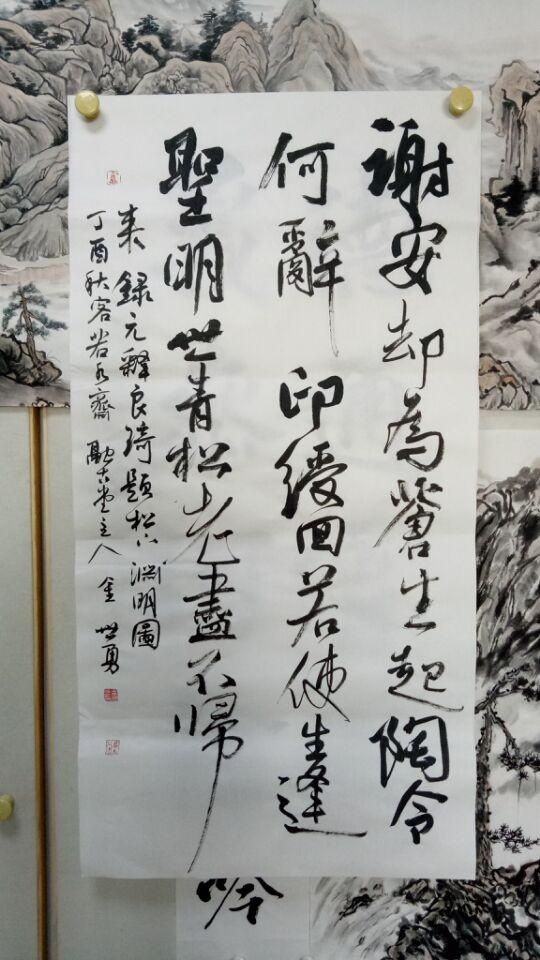 謝安却為蒼生起陶令
何辭印綬回若使生逢
聖明世青松老盡不歸
来 錄元釋良琦題松下淵明圖
丁酉秋客若水齋 融古堂主人 金世勇
吟